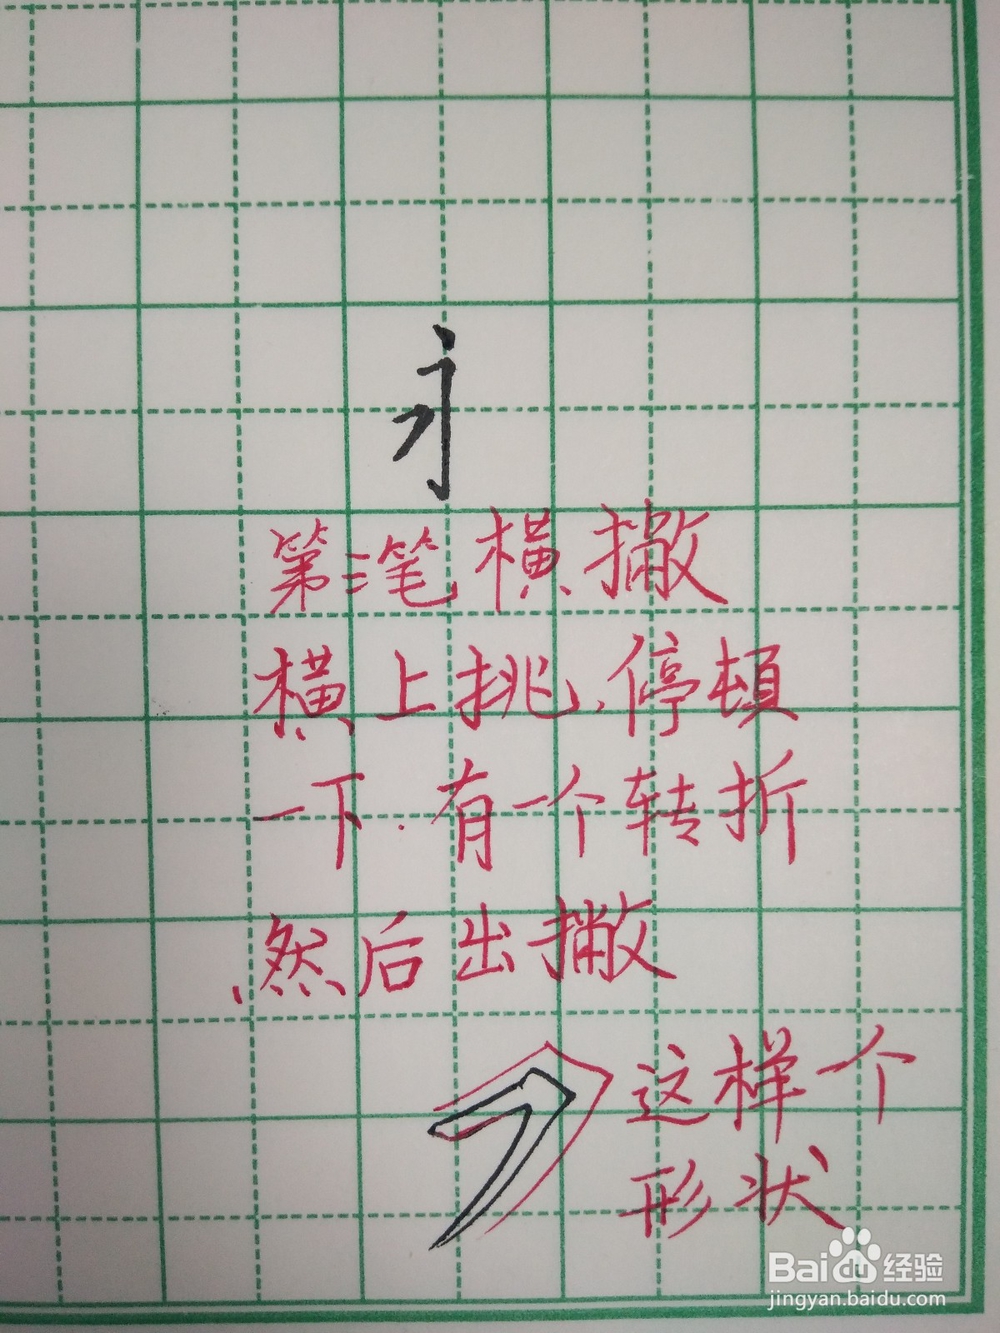 第三笔横撇
横上挑、停顿
一下.有一个转折
然后出撇
这样个
形状
Baidu经验
jingyan.baidu.com